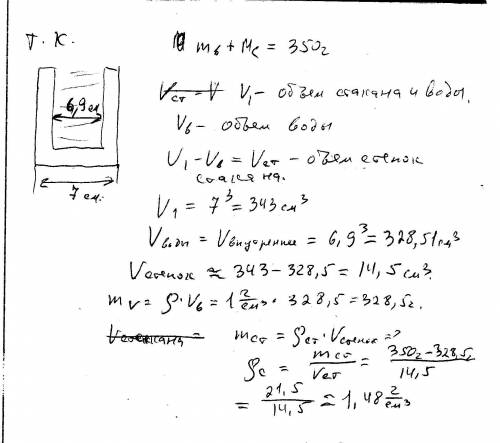 т. к.
m_в + M_с = 350г
6,9см
7 см.
V_ст = V V₁ - объем стакана и воды.
V_в - объем воды
V₁ - V_в = V_ст - объем стенок
стакана.
V₁ = 7³ = 343 см³
V_воды = V_внутреннее = 6,9³ = 328,51см³
V_стенок ≈ 343 - 328,5 = 14,5 см³.
m_v = ρ·V_в = 1 г/см³ · 328,5 = 328,5г.
V_стакана = m_ст = ρ_ст · V_стенок =>
ρ_с = m_ст/V_ст = 350г - 328,5г/14,5
= 21,5/14,5 ≈ 1,48 г/см³